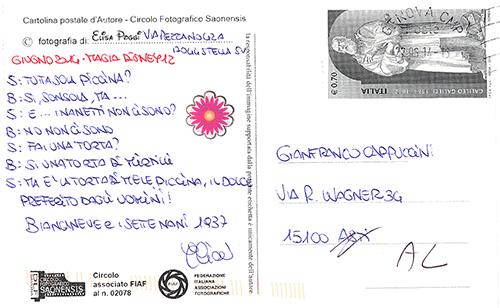 Cartolina postale d'Autore - Circolo Fotografico Saonensis
© fotografia di: ELISA POGGI VIA PEZZANOLIZA
17011 STELLA SV
GIUGNO 2014 - MAGIA DISNEY 12
S: TUTA SOLA PICCINA?
B: SI, SON SOLA, MA...
S: E... I NANETTI NON CI SONO?
B: NO NON CI SONO
S: FAI UNA TORTA?
B: SI UNA TORTA DI MIRTILLI
S: MA E' LA TORTA DI MELE, PICCINA, IL DOLCE
PREFERITO DAGLI UOMINI!
BIANCINEVE E I SETTE NANI 1937
Circolo
associato FIAF
al n. 02078
CIRCOLO
FOTOGRAFICO
SAONENSIS
FIAF
FEDERAZIONE
ITALIANA
ASSOCIAZIONI
FOTOGRAFICHE
la responsabilità dell'immagine supportata dalla presente etichetta è unicamente dell'Autore
€ 0,70
ITALIA
GALILEO GALILEI 1564 - 1642
GENOVA CMP
GIANFRANCO CAPPUCCINI
VIA R. WAGNER 34
15100 Asti
AL